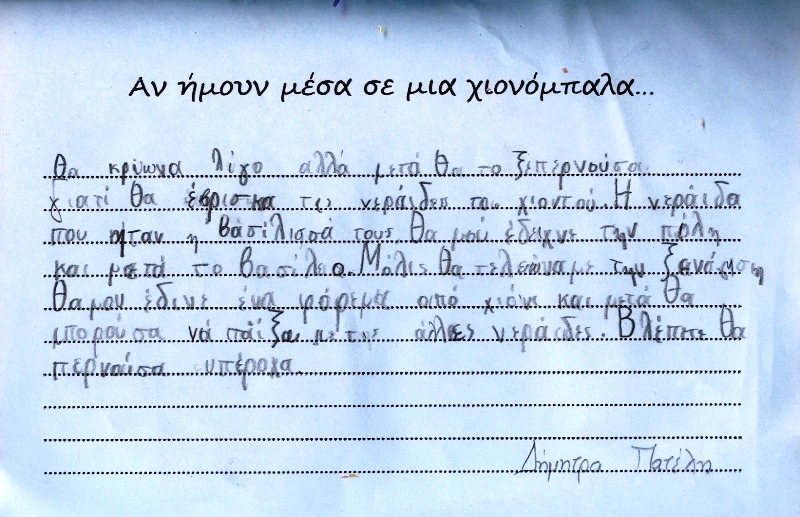 Αν ήμουν μέσα σε μια χιονόμπαλα...
Θα κρύωνα λίγο αλλά μετά θα το ξεπερνούσα
γιατί θα έβρισκα τις νεράιδες του χιονιού. Η νεράιδα
που ήταν η βασίλισσά τους θα μού έδειχνε την πόλη
και μετά το βασίλειο. Μόλις θα τελειώναμε την ξενάγηση
θα μου έδινε ένα φόρεμα από χιόνι και μετά θα
μπορούσα νά παίξω με τις άλλες νεράιδες. Βλέπετε θα
περνούσα υπέροχα.
Δήμητρα Πατέλη